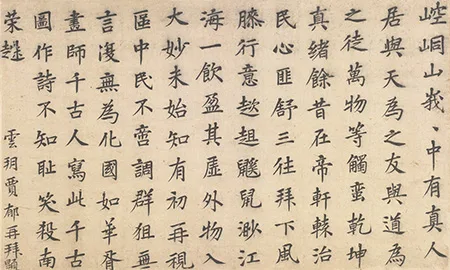 崆峒山峩〻中有真人
居與天為之友與道為
之徒萬物等觸蛮乾坤
真緒餘昔在帝軒轅治
民心匪舒三往拜下風
膝行意趑趄鼷鼠渺江
海一飲盈其虛外物入
大妙未始知有初再視
區中民不啻調群狙無
言復無為化國如華胥
畫師千古人寫此千古
圖作詩不知耻笑殺南
荣趎
雲玥賈郁再拜題